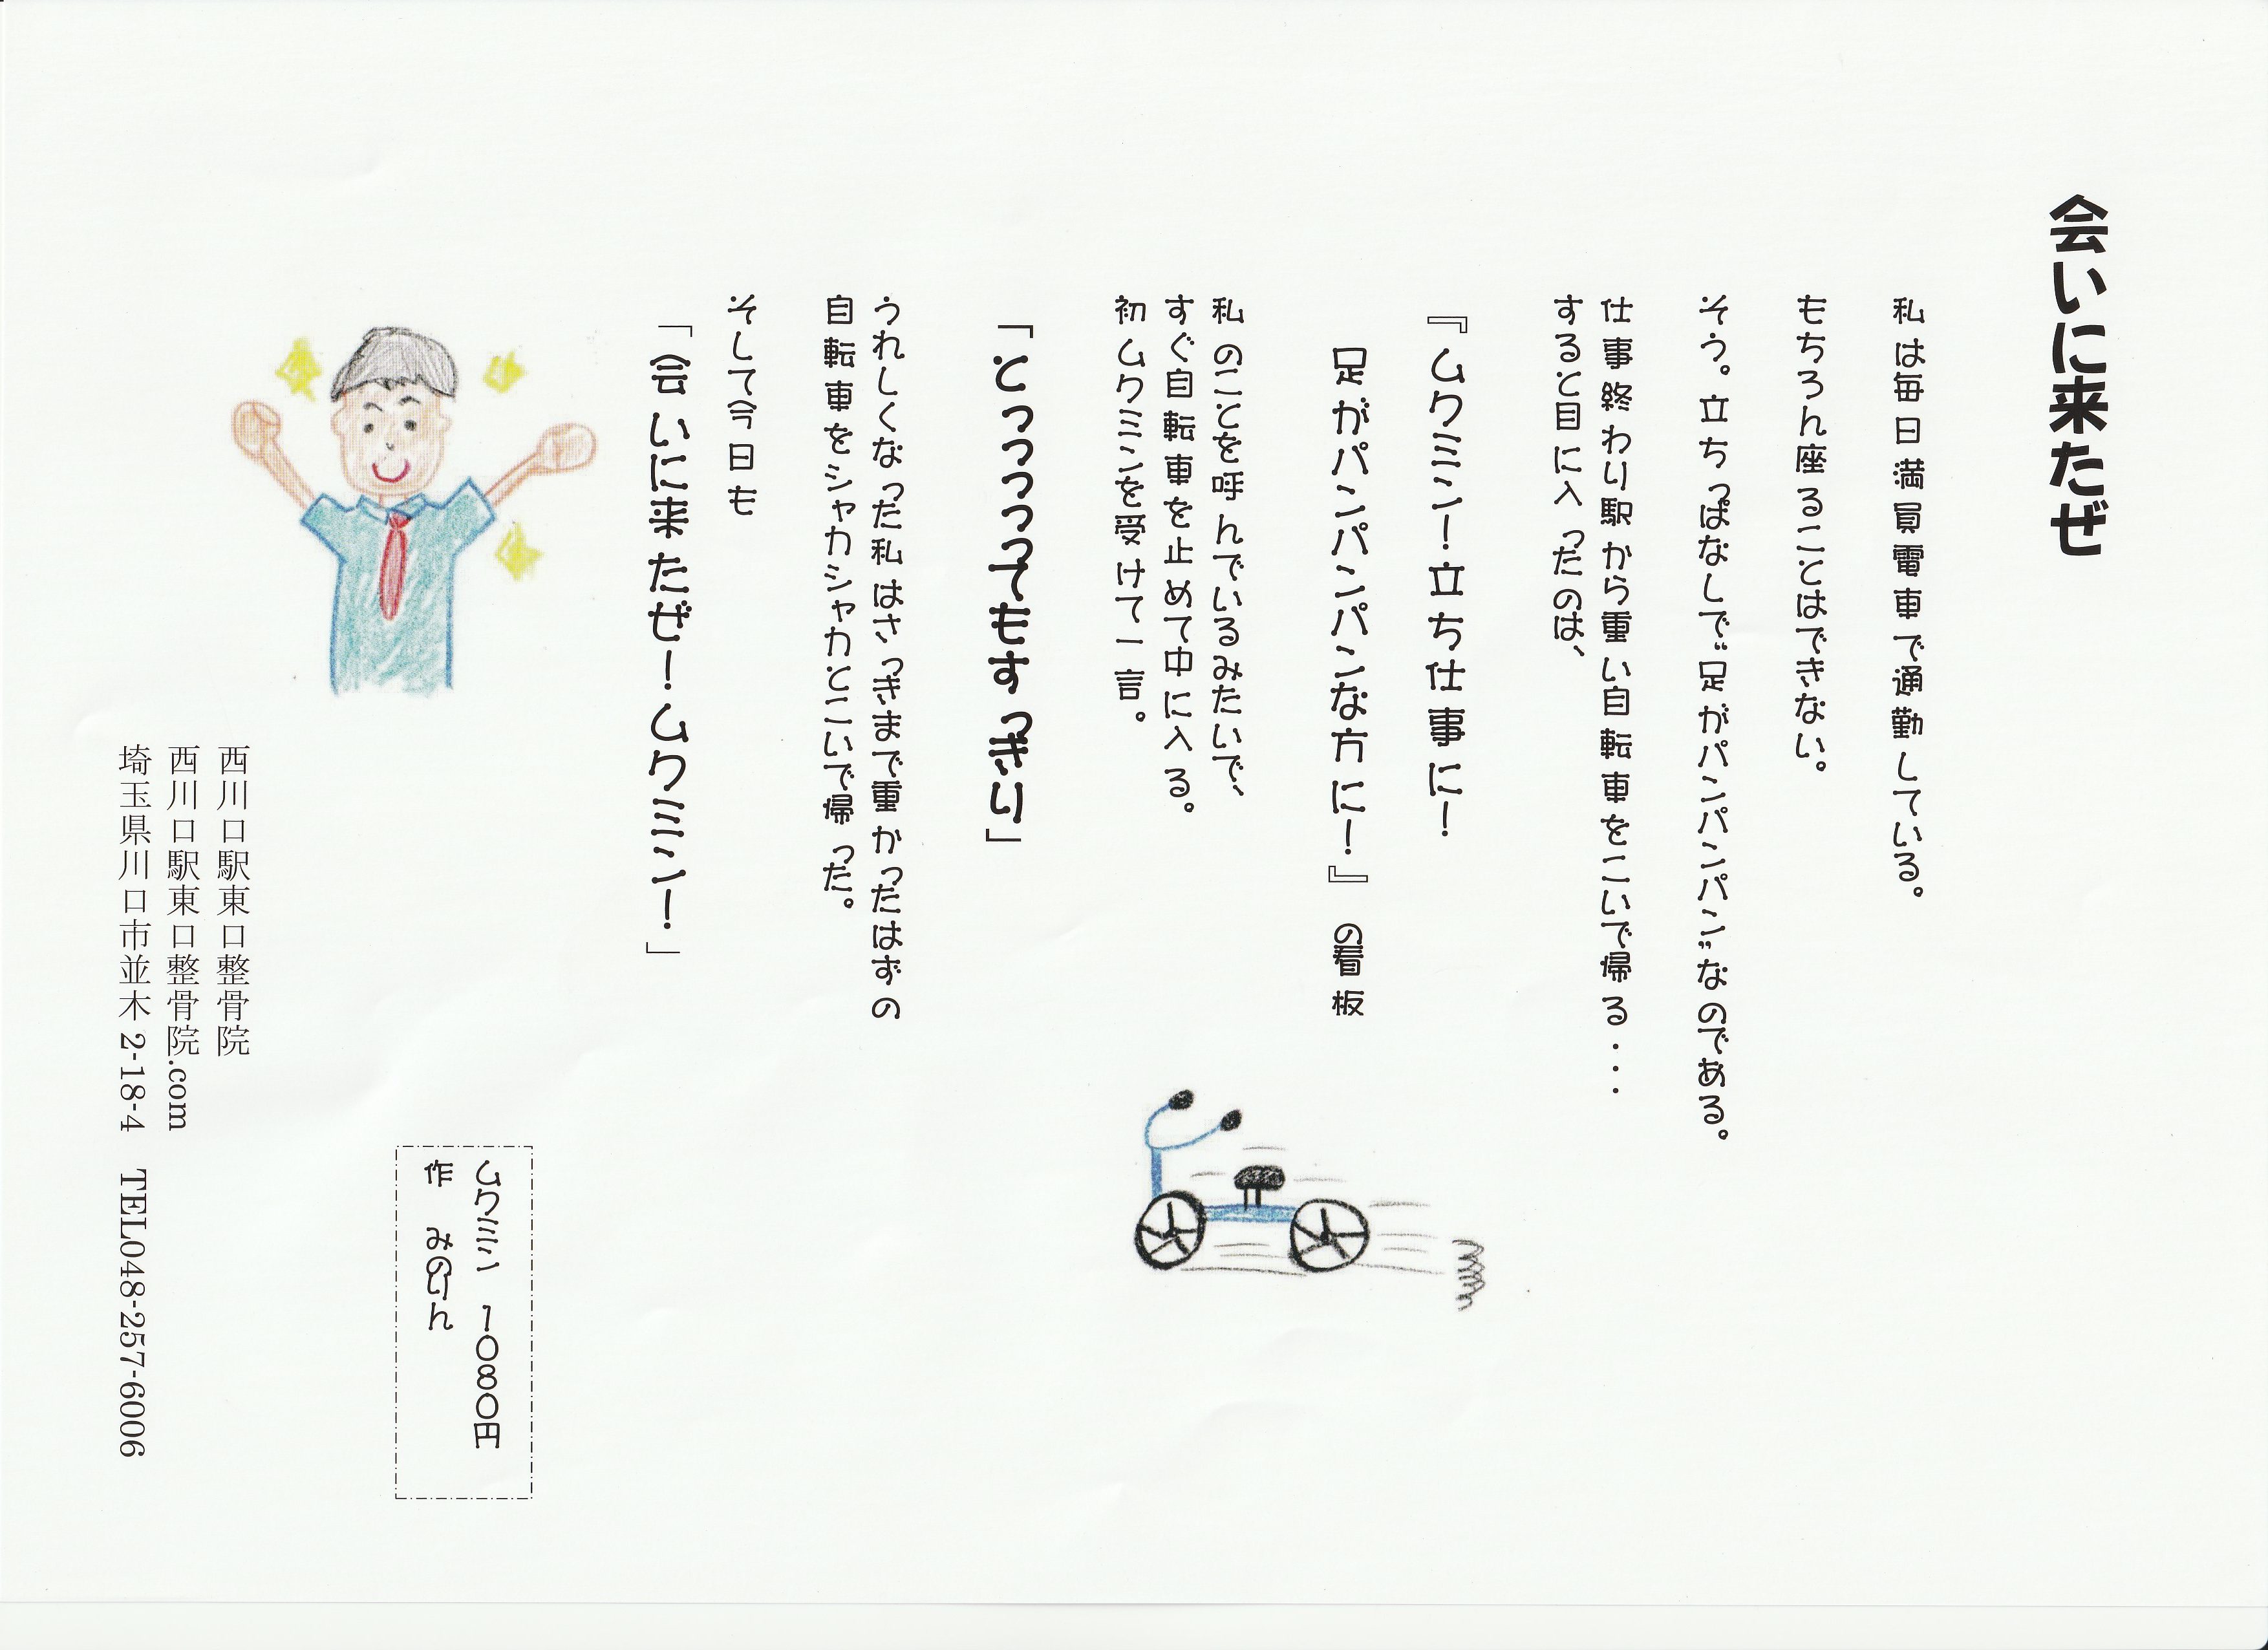 会いに来たぜ
私は毎日満員電車で通勤している。
もちろん座ることはできない。
そう。立ちっぱなしで“足がパンパンパンパン”なのである。
仕事終わり駅から重い自転車をこいで帰る・・・
すると目に入ったのは、
『ムクミン！立ち仕事に！
足がパンパンパンパンな方に！』の看板
私のことを呼んでいるみたいで、
すぐ自転車を止めて中に入る。
初ムクミンを受けて一言。
「とっっっっってもすっきり」
うれしくなった私はさっきまで重かったはずの
自転車をシャカシャカとこいで帰った。
そして今日も
「会いに来たぜ！ムクミン！」
ムクミン　1080円
作　みのりん
西川口駅東口整骨院
西川口駅東口整骨院.com
埼玉県川口市並木 2-18-4　TEL048-257-6006